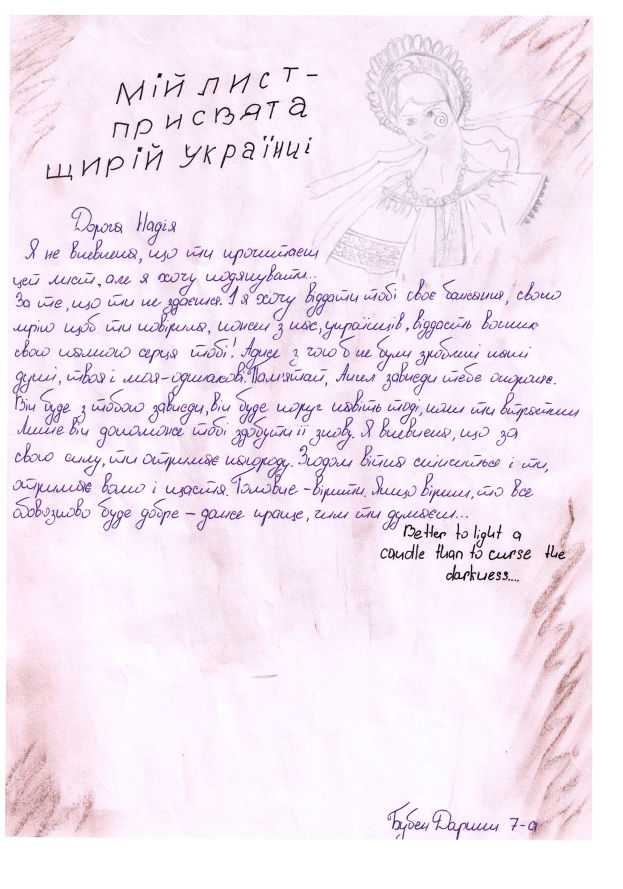 Мій лист-
присвята
щирій українці
Дорога Надія
Я не впевнена, що ти прочитаєш
цей лист, але я хочу подякувати...
За те, що ти не здаєшся. І я хочу віддати тобі своє бажання, свою
мрію щоб ти повірила, кожен з нас, українців, віддасть вогник
свого палкого серця тобі! Адже з чого б не були зроблені наші
душі, твоя і моя-однакові. Пам'ятай, Ангел завжди тебе охороняє.
Він буде з тобою завжди, він буде поруч навіть тоді, коли ти втратиш
Лише він допоможе тобі здобути її знову. Я впевнена, що за
свою силу, ти отримаєш нагороду. Згодом війна скінчиться і ти,
отримаєш волю і щастя. Головне - вірити. Якщо віриш, то все
обовязково буде добре - даже краще, чим ти думаєш...
Better to light a
candle than to curse the
darkness....
Бубен Дарини 7-а